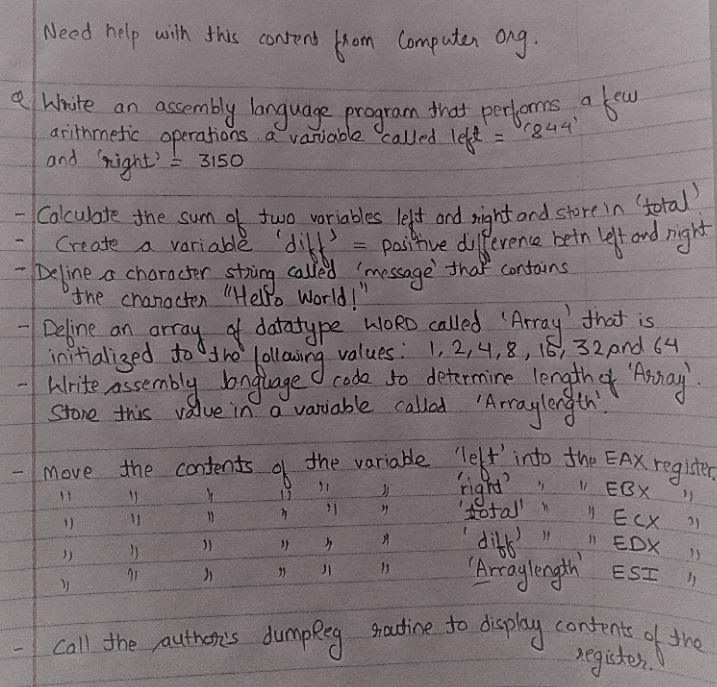 Need help with this content from Computer Org.
Q Write an assembly language program that performs a few
arithmetic operations. a variable called left = '844'
and 'right' = 3150
- Calculate the sum of two variables left and right and store in 'total'
- Create a variable 'diff' = positive difference betn left and right
- Define a character string called 'message' that contains
the character "Hello World!"
- Define an array of datatype WORD called 'Array' that is
initialized to the following values: 1, 2, 4, 8, 16, 32 and 64
- Write assembly language code to determine length of 'Array'.
Store this value in a variable called 'Arraylength'.
- Move the contents of the variable 'left' into the EAX register.
" " " " " " 'right' " " EBX "
" " " " " " 'total' " " ECX "
" " " " " " 'diff' " " EDX "
" " " " " " 'Arraylength' ESI "
- Call the author's dumpReg routine to display contents of the
register.